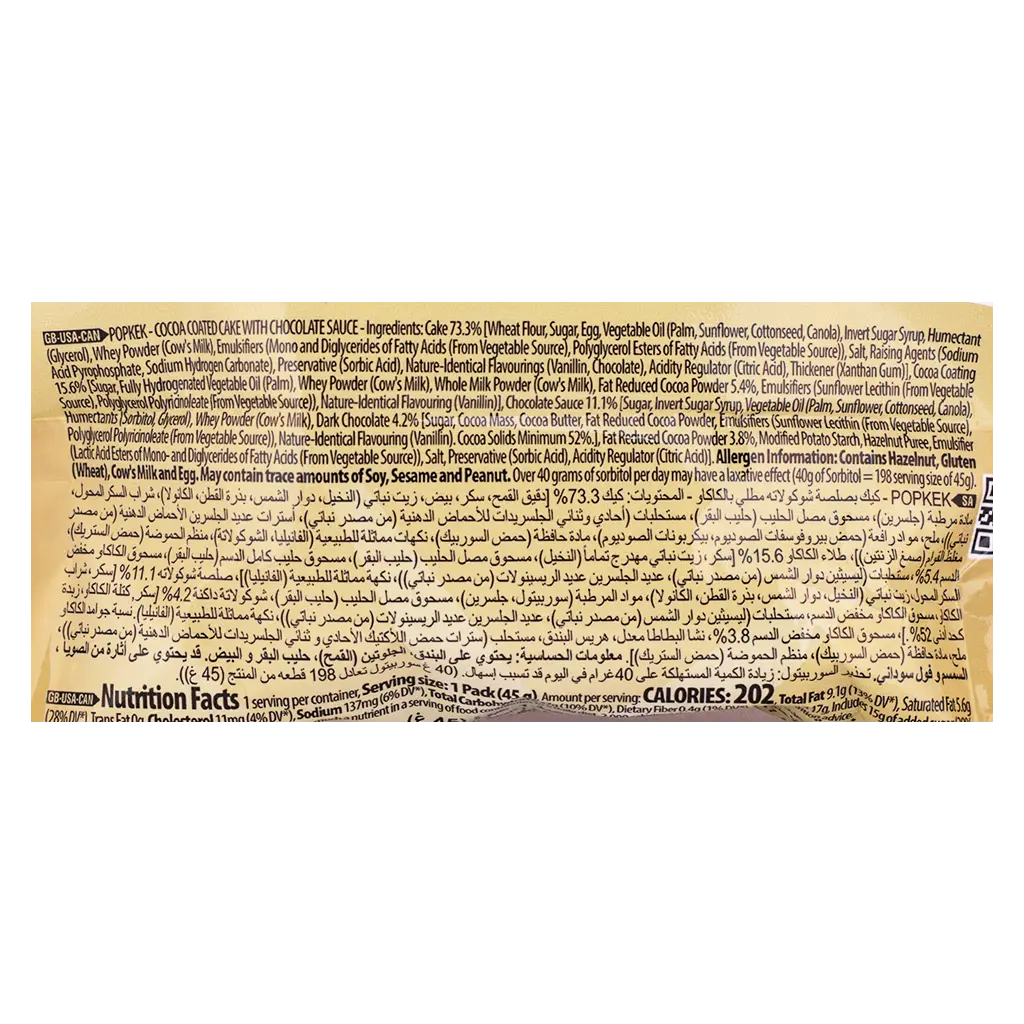 GB-USA-CAN POPKEK - COCOA COATED CAKE WITH CHOCOLATE SAUCE - Ingredients: Cake 73.3% [Wheat Flour, Sugar, Egg, Vegetable Oil (Palm, Sunflower, Cottonseed, Canola), Invert Sugar Syrup, Humectant
(Glycerol), Whey Powder (Cow's Milk), Emulsifiers (Mono and Diglycerides of Fatty Acids (From Vegetable Source), Polyglycerol Esters of Fatty Acids (From Vegetable Source)), Salt, Raising Agents (Sodium
Acid Pyrophosphate, Sodium Hydrogen Carbonate), Preservative (Sorbic Acid), Nature-Identical Flavourings (Vanillin, Chocolate), Acidity Regulator (Citric Acid), Thickener (Xanthan Gum)], Cocoa Coating
15.6% [Sugar, Fully Hydrogenated Vegetable Oil (Palm), Whey Powder (Cow's Milk), Whole Milk Powder (Cow's Milk), Fat Reduced Cocoa Powder 5.4%, Emulsifiers (Sunflower Lecithin (From Vegetable
Source), Polyglycerol Polyricinoleate (From Vegetable Source)), Nature-Identical Flavouring (Vanillin)], Chocolate Sauce 11.1% [Sugar, Invert Sugar Syrup, Vegetable Oil (Palm, Sunflower, Cottonseed, Canola),
Humectants (Sorbitol, Glycerol), Whey Powder (Cow's Milk), Dark Chocolate 4.2% [Sugar, Cocoa Mass, Cocoa Butter, Fat Reduced Cocoa Powder, Emulsifiers (Sunflower Lecithin (From Vegetable Source),
Polyglycerol Polyricinoleate (From Vegetable Source)), Nature-Identical Flavouring (Vanillin). Cocoa Solids Minimum 52%.], Fat Reduced Cocoa Powder 3.8%, Modified Potato Starch, Hazelnut Puree, Emulsifier
(Lactic Acid Esters of Mono- and Diglycerides of Fatty Acids (From Vegetable Source)), Salt, Preservative (Sorbic Acid), Acidity Regulator (Citric Acid)]. Allergen Information: Contains Hazelnut, Gluten
(Wheat), Cow's Milk and Egg. May contain trace amounts of Soy, Sesame and Peanut. Over 40 grams of sorbitol per day may have a laxative effect (40g of Sorbitol = 198 serving size of 45g).
SA POPKEK - كيك بصلصة شوكولاته مطلي بالكاكاو - المحتويات: كيك 73.3% [دقيق القمح، سكر، بيض، زيت نباتي (النخيل، دوار الشمس، بذرة القطن، الكانولا)، شراب السكر المحول،
مادة مرطبة (جلسرين)، مسحوق مصل الحليب (حليب البقر)، مستحلبات (أحادي وثنائي الجلسريدات للأحماض الدهنية (من مصدر نباتي)، أسترات عديد الجلسرين الأحماض الدهنية (من مصدر
نباتي))، ملح، مواد رافعة (حمض بيروفوسفات الصوديوم، بيكربونات الصوديوم)، مادة حافظة (حمض السوربيك)، نكهات مماثلة للطبيعية (الفانيليا، الشوكولاتة)، منظم الحموضة (حمض الستريك)،
مغلظ القوام (صمغ الزنتين)]، طلاء الكاكاو 15.6% [سكر، زيت نباتي مهدرج تماماً (النخيل)، مسحوق مصل الحليب (حليب البقر)، مسحوق حليب كامل الدسم (حليب البقر)، مسحوق الكاكاو مخفض
الدسم 5.4%، مستحلبات (ليسيثين دوار الشمس (من مصدر نباتي)، عديد الجلسرين عديد الريسينولات (من مصدر نباتي))، نكهة مماثلة للطبيعية (الفانيليا)]، صلصة شوكولاته 11.1% [سكر، شراب
السكر المحول، زيت نباتي (النخيل، دوار الشمس، بذرة القطن، الكانولا)، مواد المرطبة (سوربيتول، جلسرين)، مسحوق مصل الحليب (حليب البقر)، شوكولاتة داكنة 4.2% [سكر، كتلة الكاكاو، زبدة
الكاكاو، مسحوق الكاكاو مخفض الدسم، مستحلبات (ليسيثين دوار الشمس (من مصدر نباتي)، عديد الجلسرين عديد الريسينولات (من مصدر نباتي))، نكهة مماثلة للطبيعية (الفانيليا). نسبة جوامد الكاكاو
كحد أدنى 52%.]، مسحوق الكاكاو مخفض الدسم 3.8%، نشا البطاطا معدل، هريس البندق، مستحلب (سترات حمض اللأكتيك الأحادي و ثنائي الجلسريدات للأحماض الدهنية (من مصدر نباتي))،
ملح، مادة حافظة (حمض السوربيك)، منظم الحموضة (حمض الستريك)]. معلومات الحساسية: يحتوي على البندق، الجلوتين (القمح)، حليب البقر و البيض. قد يحتوي على أثارة من الصويا،
السمسم و فول سوداني. تحذيب السوربيتول: زيادة الكمية المستهلكة على 40 غرام في اليوم قد تسبب إسهال. (40 غ سوربيتول تعادل 198 قطعه من المنتج (45 غ)).
GB-USA-CAN Nutrition Facts 1 serving per container, Serving size: 1 Pack (45 g), Amount per serving: CALORIES: 202, Total Fat 9.1g (13% DV*), Saturated Fat 5.6g
(28% DV*), Trans Fat 0g, Cholesterol 11mg (4% DV*), Sodium 137mg (6% DV*), Total Carboh (10% DV*), Dietary Fiber 0.4g 17g, Includes 15g of added
nutrient in a serving of food